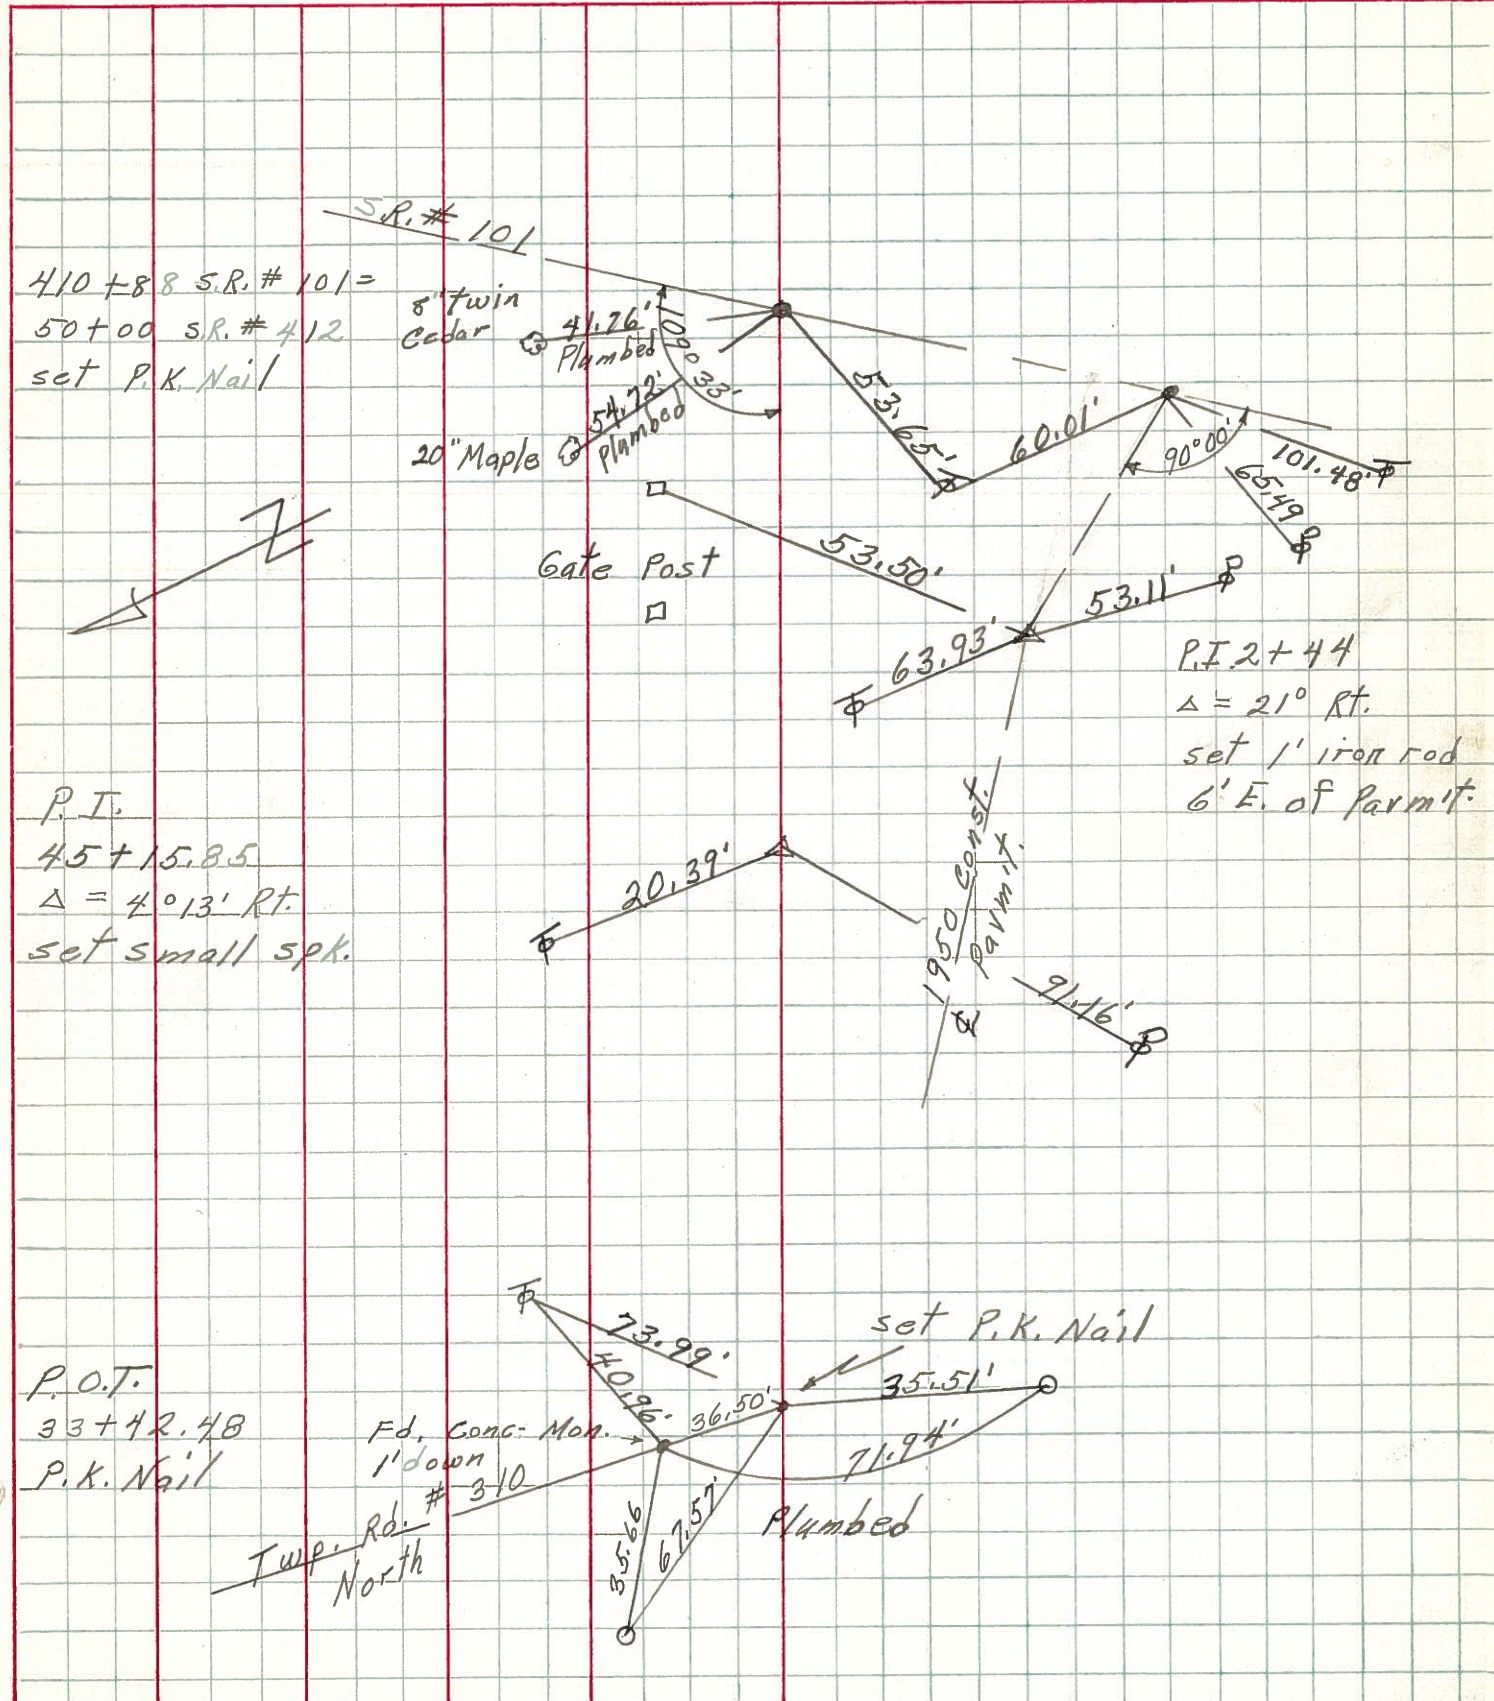 S.R. # 101
410+88 S.R. # 101 =
50+00 S.R. # 412
set P.K. Nail
8" twin
Cedar
41.76'
Plumbed
109° 33'
54.72'
Plumbed
20" Maple
53.65'
60.01'
90°00'
101.48'
65.49
N
Gate Post
53.50'
53.11'
63.93'
P.I. 2+44
Δ = 21° Rt.
set 1' iron rod
6' E. of Parm't.
P.I.
45+15.85
Δ = 4°13' Rt.
set small spk.
20.39'
1950 Const.
Parm't.
91.16'
73.99'
set P.K. Nail
40.96'
36.50'
35.51'
P.O.T.
33+42.48
P.K. Nail
Fd. Conc. Mon.
1' down
71.94'
Twp. Rd. # 310
North
35.66
67.57'
Plumbed